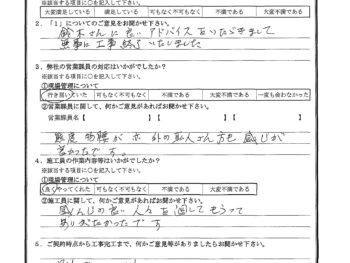 ※該当する項目に○を記入して下さい。
大変満足している 満足している 可も無く不可も無く 不満である 大変不満である
2．「1」についてのご意見をお聞かせ下さい。
鈴木さんに良いアドバイスをいただきまして
無事に工事終了いたしました
3．弊社の営業課員の対応はいかがでしたか？
※該当する項目に○を記入して下さい。
①現場管理について
行き届いていた 可もなく不可もなく 不満である 大変不満である 一度も会わなかった
②営業課員に関して、何かご意見があればお聞かせ下さい。
営業課員名【 】【 】【 】
態度 物腰が 外の職人さん方も 感じが
良かったです。
4．施工員の作業内容等はいかがでしたか？
※該当する項目に○を記入して下さい。
①現場管理について
良くやってくれた 可もなく不可もなく 不満である 大変不満である
②施工員に関して、何かご意見があればお聞かせ下さい。
感んじの良い人々を回してもらって
ありがたかったです
5．ご契約時点から工事完工まで、何かご意見等がありましたらお聞かせ下さい。